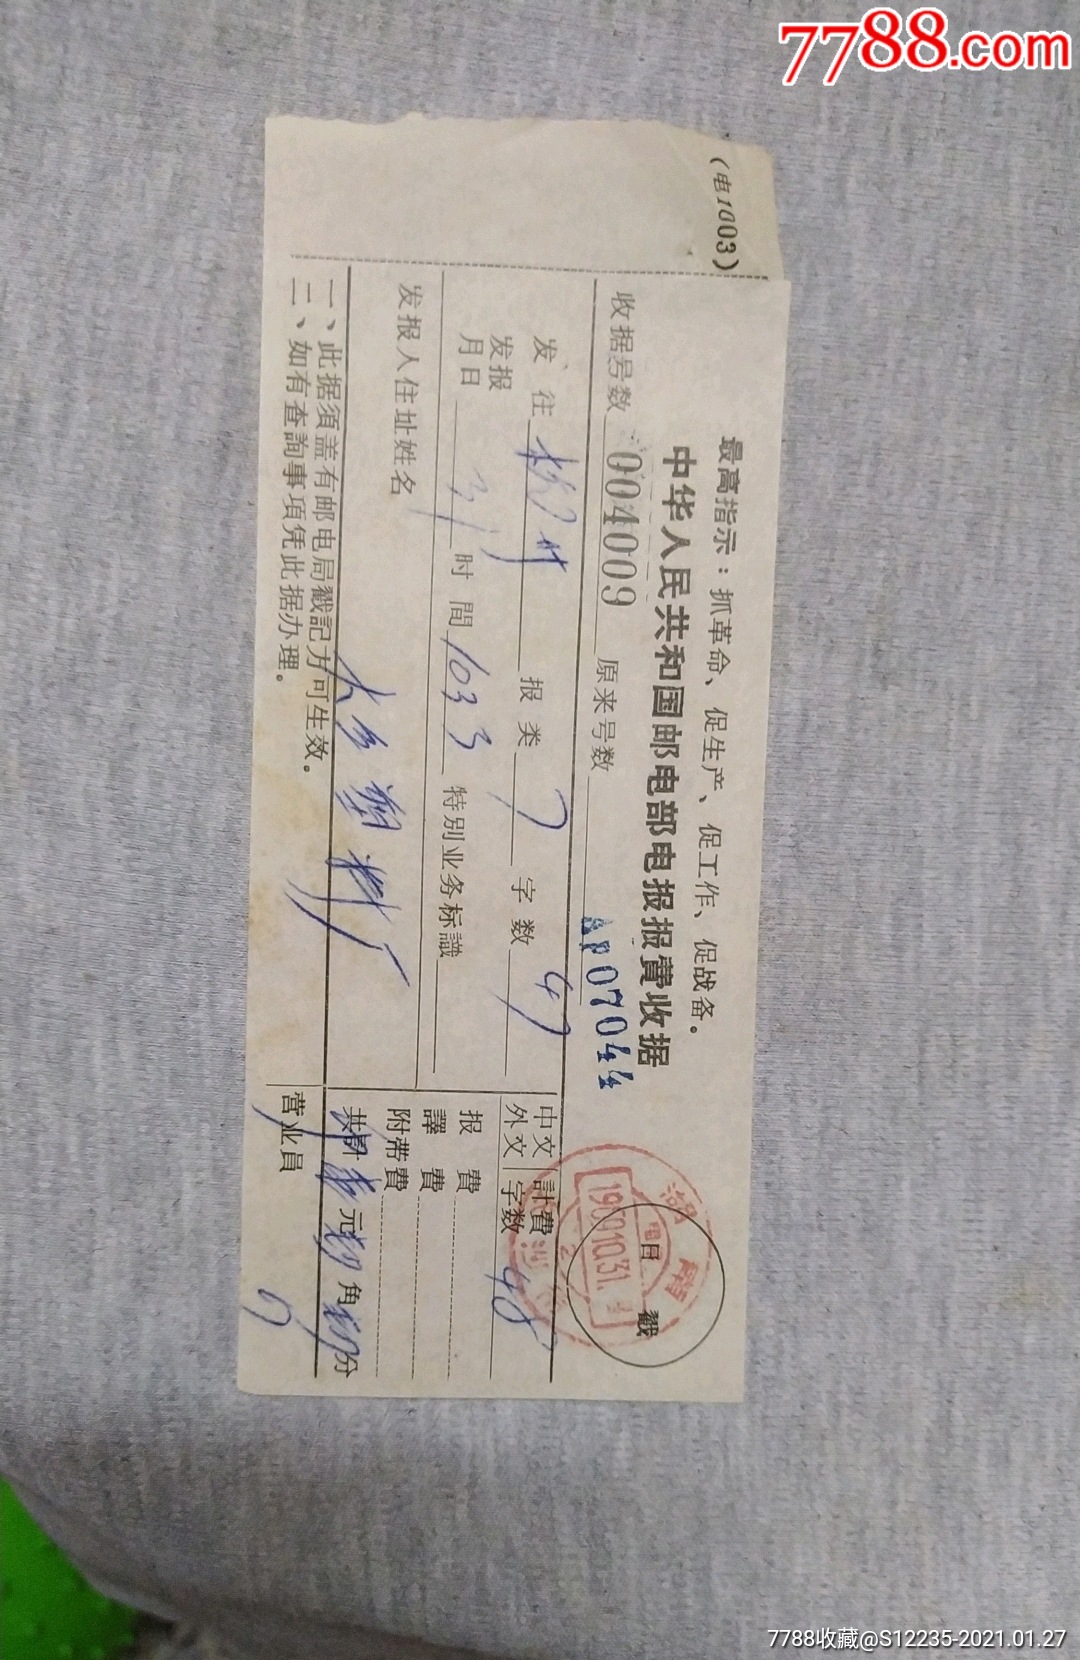 7788.com
(电1003)
最高指示：抓革命、促生产、促工作、促战备。
中华人民共和国邮电部电报报費收据
收据号数 004009 原来号数 AP07044
发往 杭州 报类 7 字数 47
发报月日 31 时間 1033 特别业务标識
发报人住址姓名
塑料厂
中文 外文 計費字数 48
报費
譯費
附带費
共計 元 角 分
营业員
日戳
湖南
1969.10.31.
一、此据须盖有邮电局戳記方可生效。
二、如有查詢事項凭此据办理。
7788收藏@S12235-2021.01.27